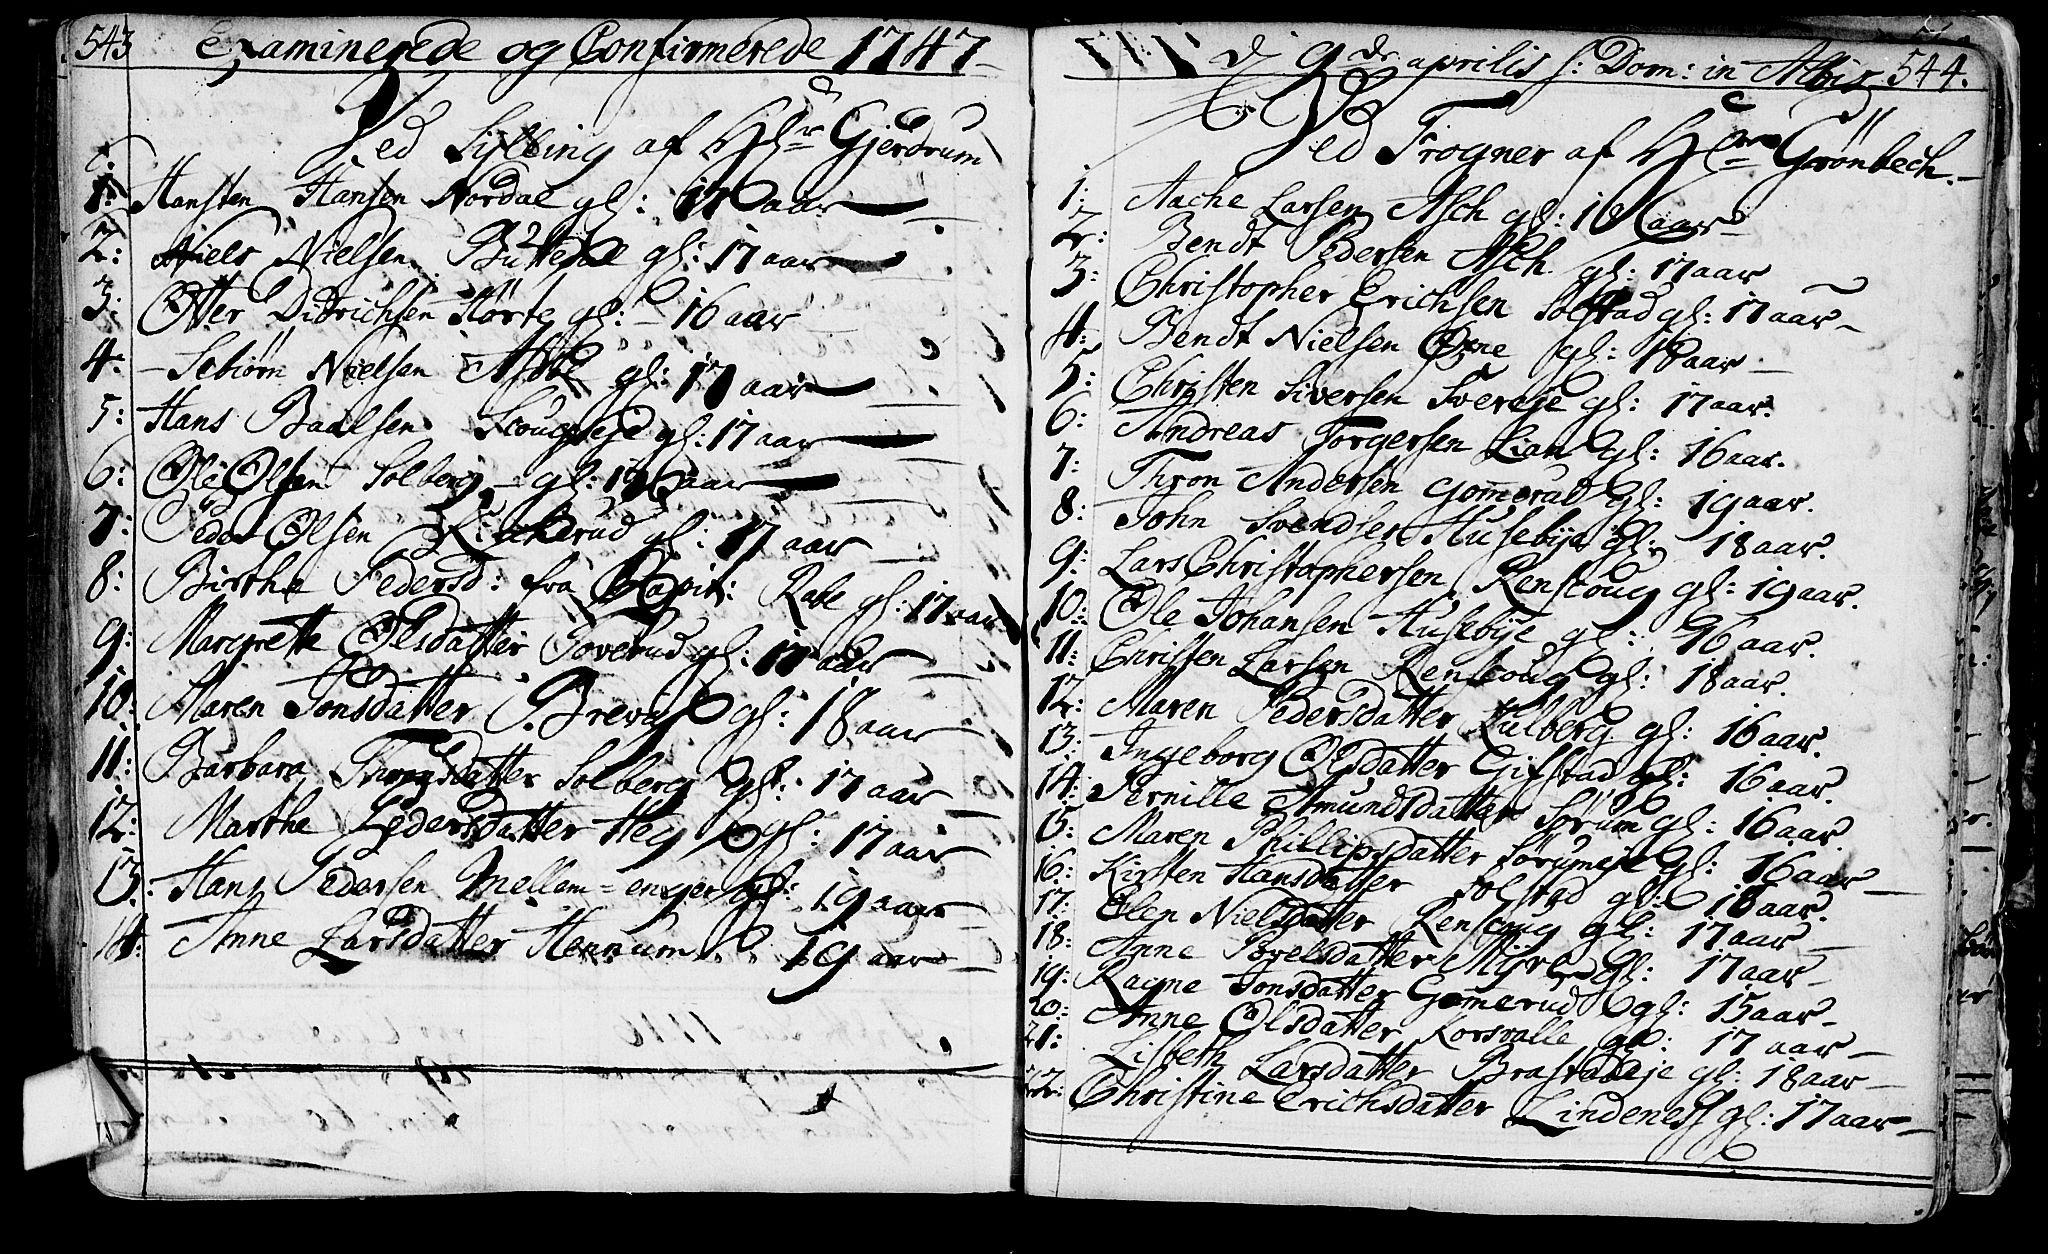 543 Examinerede og Confirmerede 1747
Ved Sylling af Hr Gjerdrum
1: Hansten Hansen Nordal gl: 17 aar
2: Niels Nielsen gl: 17 aar
3: Otter Didrichsen Hörte gl: 16 aar
4: Sebiörn Nielsen gl: 17 aar
5: Hans Baalsen Scougseje gl: 17 aar
6: Ole Olsen Solberg gl: 19 aar
7: Peder Olsen Kirkerud gl: 17 aar
8: Birthe Pedersd: fra Capit: Rabe gl: 17 aar
9: Margrette Olsdatter Toverud gl: 17 aar
10: Maren Jonsdatter gl: 18 aar
11: Barbara Thronsdatter Solberg gl: 17 aar
12: Marthe Pedersdatter Heg gl: 17 aar
13: Hans Pedersen Mellem=enger gl: 19 aar
14: Anne Larsdatter Hennum 19 aar
d 9de aprilis s: Dom: in Albis 544.
Ved Frogner af Hr Grönbech.
1: Aache Larsen Asch gl: aar
2: Bendt Pedersen Asch gl: 17 aar
3: Christopher Erichsen Solstad gl: 17 aar
4: Bendt Nielsen gl: 18 aar
5: Christen Siversen gl: 17 aar.
6: Andreas Torgersen Lian gl: 16 aar.
7: Thron Andersen Gom̅erud gl: 19 aar.
8: John Svendsen Husebije gl: 18 aar.
9: Lars Christophersen Renscoug gl: 19 aar.
10: Ole Johansen Husebije gl: 16 aar.
11: Christen Larsen Renscoug gl: 18 aar.
12: Maren Pedersdatter Kulberg gl: 16 aar.
13: Ingeborg Olsdatter Gifstad gl: 16 aar.
14: Pernille Amundsdatter Sörum gl: 16 aar.
15: Maren Phillipsdatter Sörumeje gl: 16 aar
16: Kirsten Hansdatter Solstad gl: 18 aar.
17: Elen Nielsdatter Renscoug gl: 17 aar
18: Anne Povelsdatter gl: 17 aar
19: Ragne Jonsdatter Gom̅erud gl: 15 aar
20: Anne Olsdatter Korsvalle gl: 17 aar
21: Lisbeth Larsdatter gl: 18 aar
22: Christine Erichsdatter Lindeness gl: 17 aar